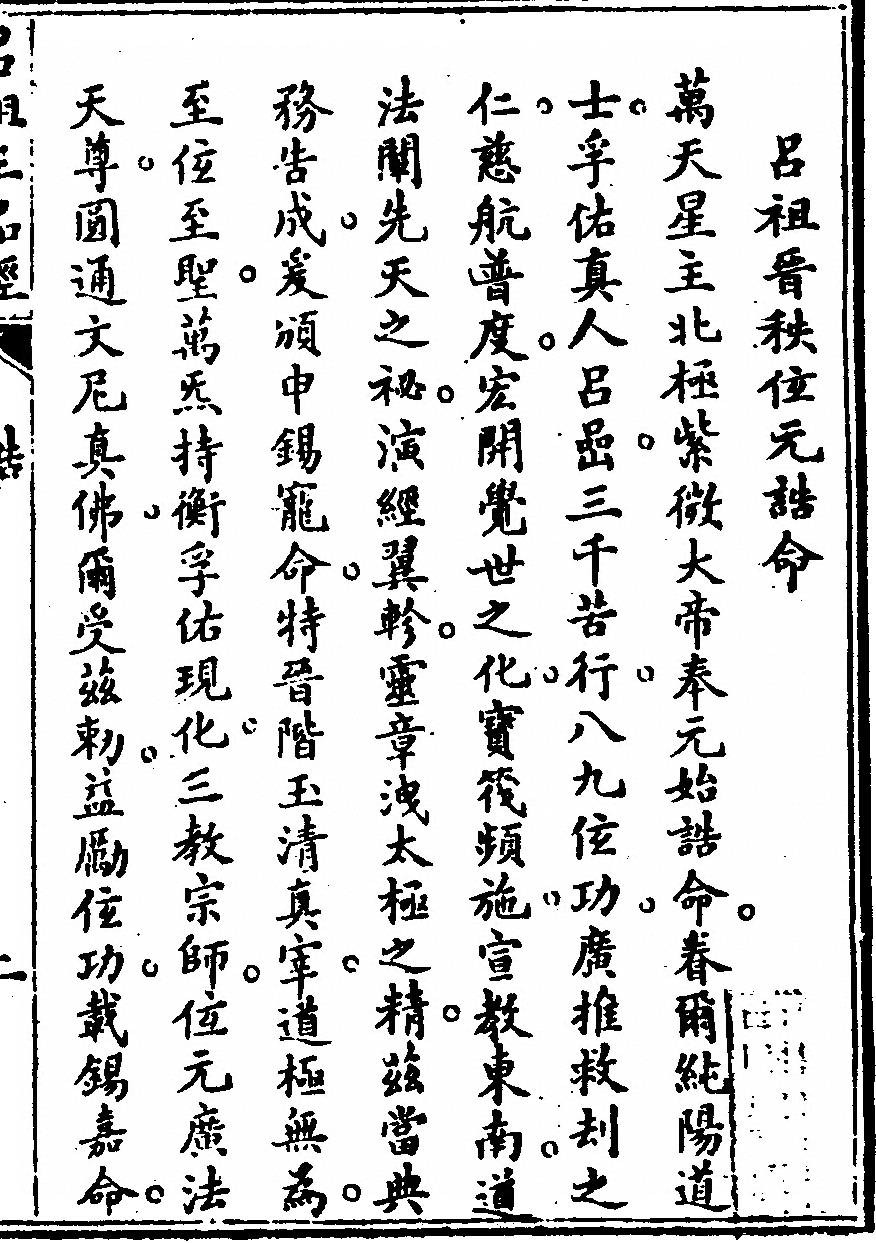 呂祖晉秩位元誥命
萬天星主北極紫微大帝奉元始誥命。眷爾純陽道
士。孚佑真人呂嵒。三千苦行。八九位功。廣推救刦之
仁。慈航普度。宏開覺世之化。寶筏頻施。宣教東南。道
法闡先天之祕。演經翼軫。靈章洩太極之精。茲當典
務告成。爰頒申錫寵命。特晉階玉清真宰。道極無為。
至位至聖。萬炁持衡孚佑現化。三教宗師。位元廣法
天尊。圓通文尼真佛。爾受茲勅。益勵位功。載錫嘉命。
呂祖三品經
誥
二